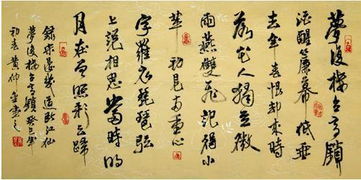 夢後樓台高鎖
酒醒簾幕低垂
去年春恨卻來時
落花人獨立微
雨燕雙飛記得小
苹初見兩重心
字羅衣琵琶弦
上說相思當時明
月在曾照彩雲歸
錄宋晏幾道臨江仙
夢後樓台高鎖癸巳年
初春黃仲金書之